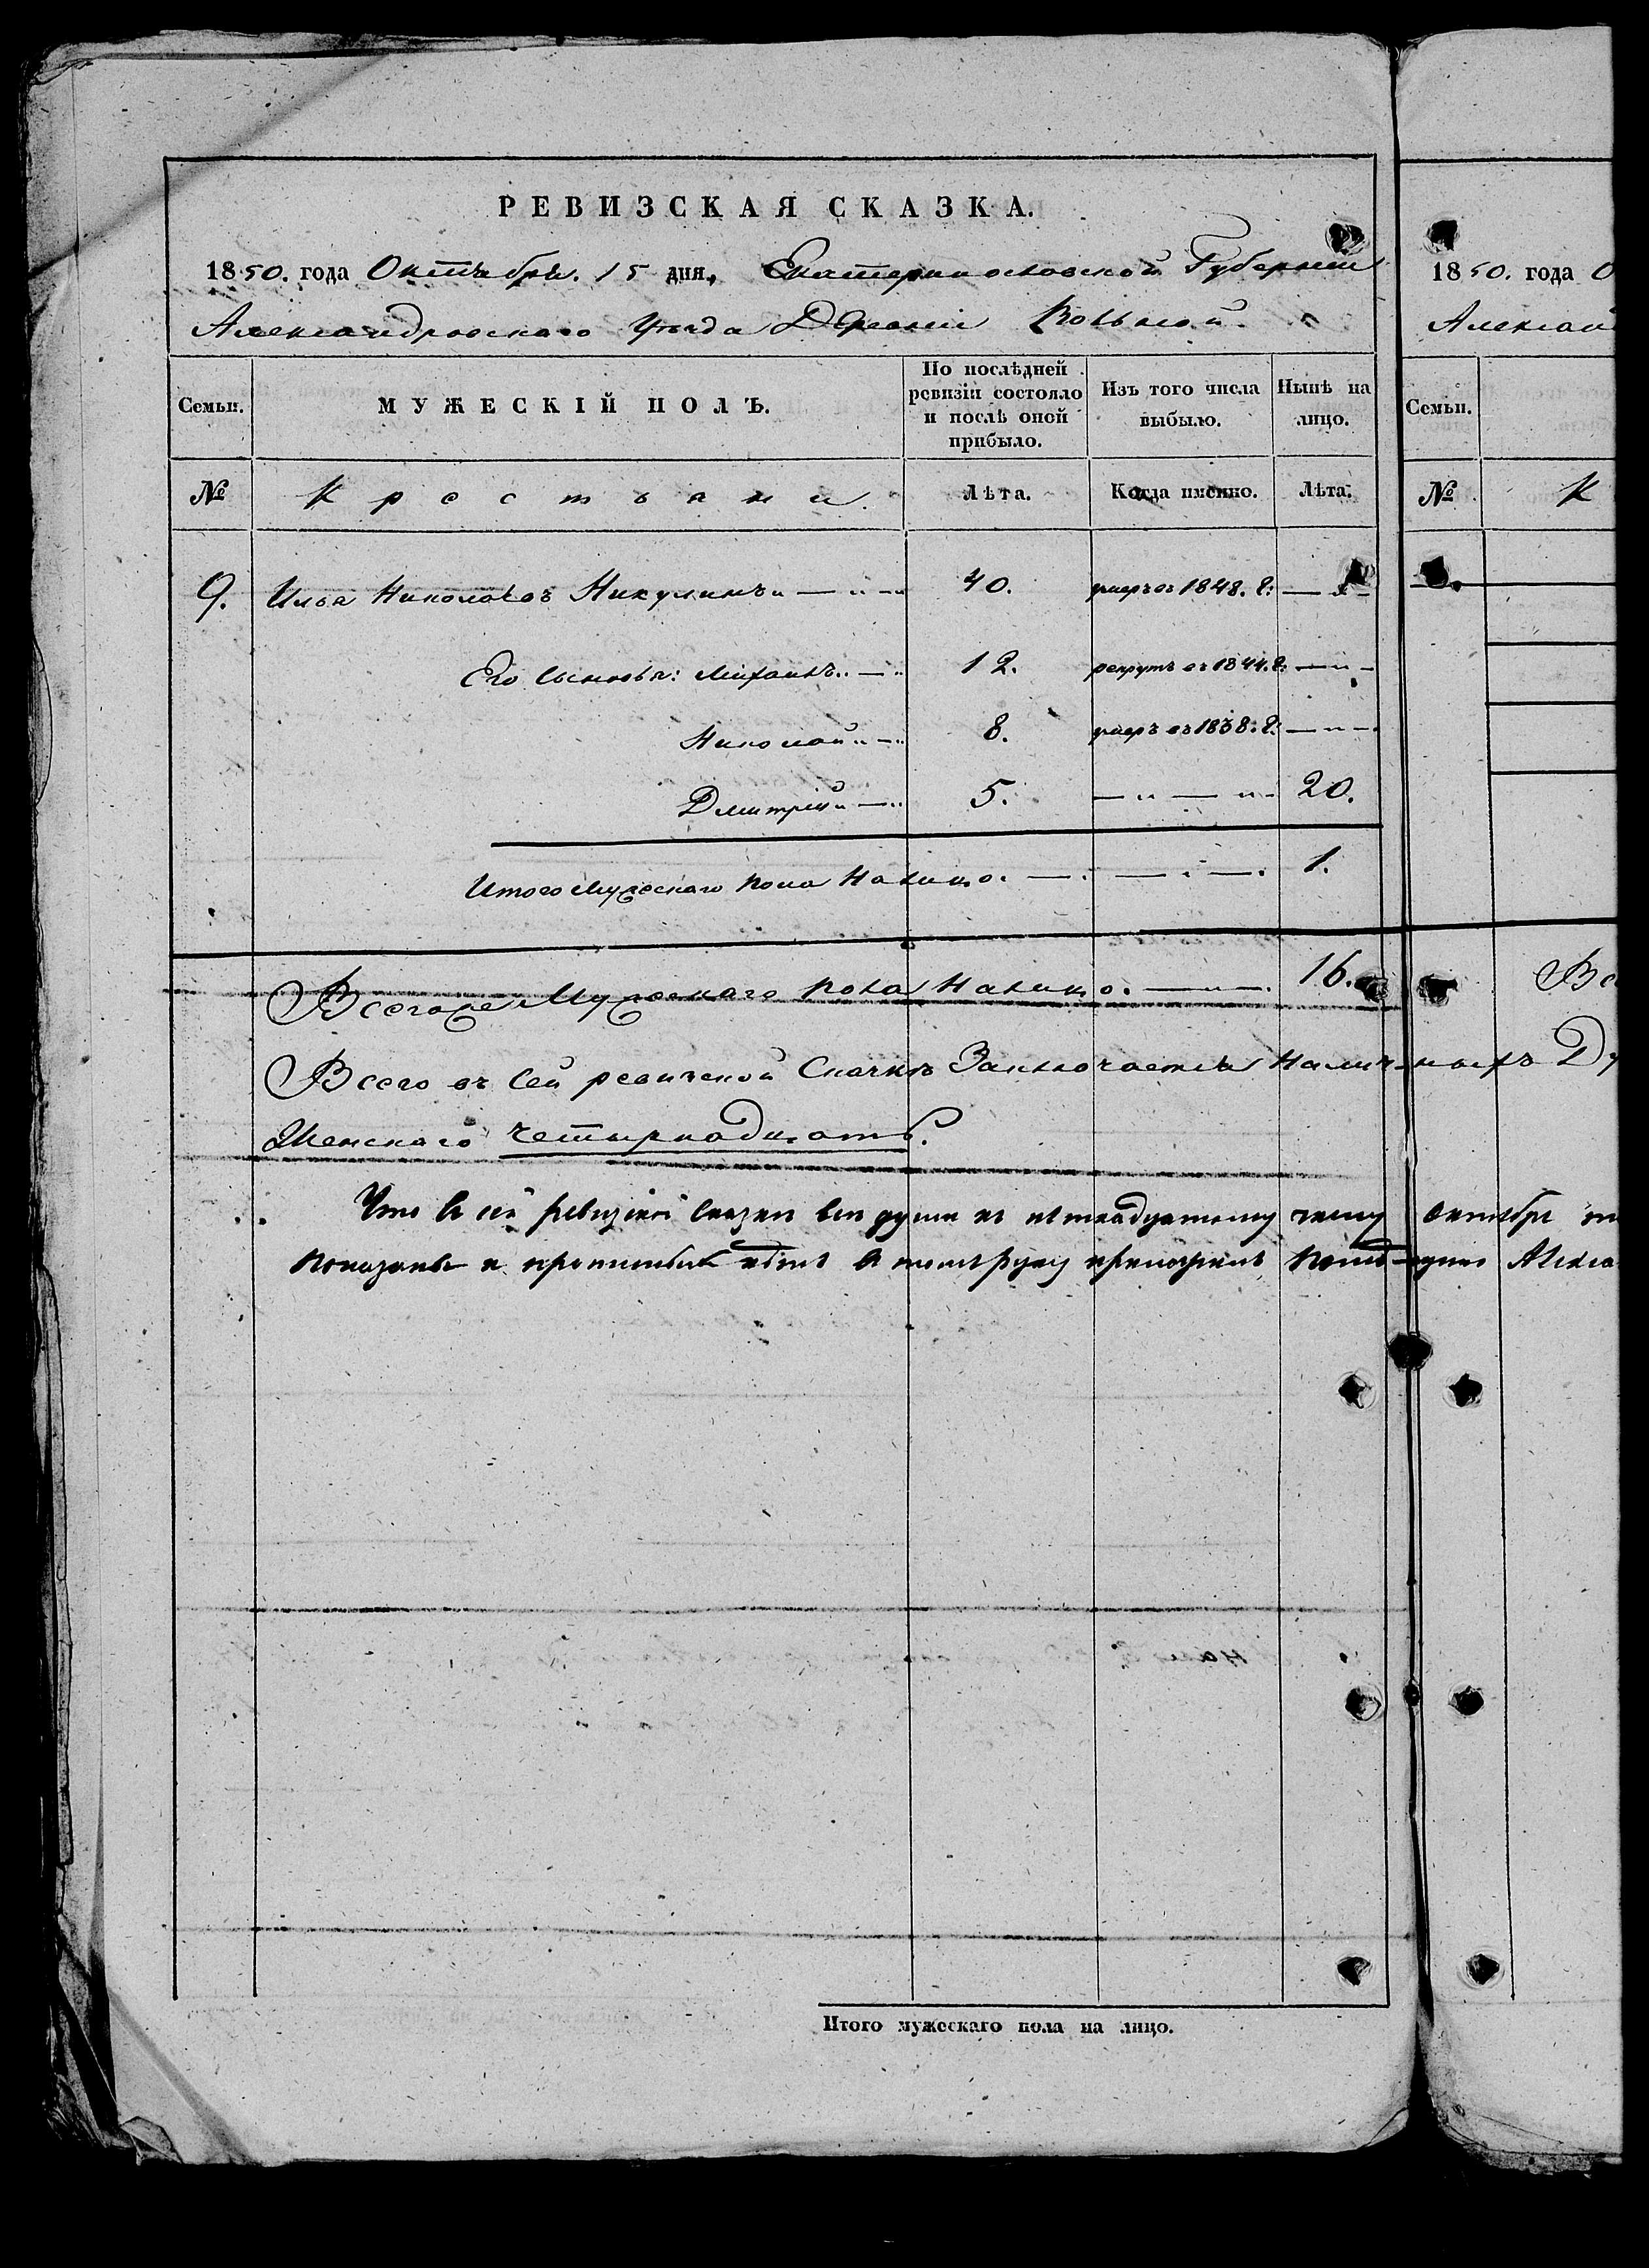 РЕВИЗСКАЯ СКАЗКА.
1850. года Октября. 15 дня, Екатеринославской Губерніи
Александровскаго Уѣзда Деревни Вольной.
Семьи. МУЖЕСКІЙ ПОЛЪ. По послѣдней ревизіи состояло и послѣ оной прибыло. Изъ того числа выбыло. Нынѣ на лицо.
№ Крестьяни. Лѣта. Когда именно. Лѣта.
9. Илья Николаевъ Никулинъ 40. умеръ въ 1848. г:
Его Сыновья: Михаилъ 12. рекрутъ въ 1844. г:
Николай 8. умеръ въ 1838: г:
Дмитрій 5. 20.
Итого Мужескаго пола На лицо. 1.
Всего же Мужескаго пола На лицо. 16.
Всего въ Сей ревизской Сказкѣ Заключается Наличныхъ Ду
Женскаго четырнадцать.
Что в сей ревизкой сказке все души к пятнадцатому числу октября
показаны и нѣтъ в томъ руку
1850. года О
Алексан
Семьи.
№ К
Вс
Итого мужескаго пола на лицо.